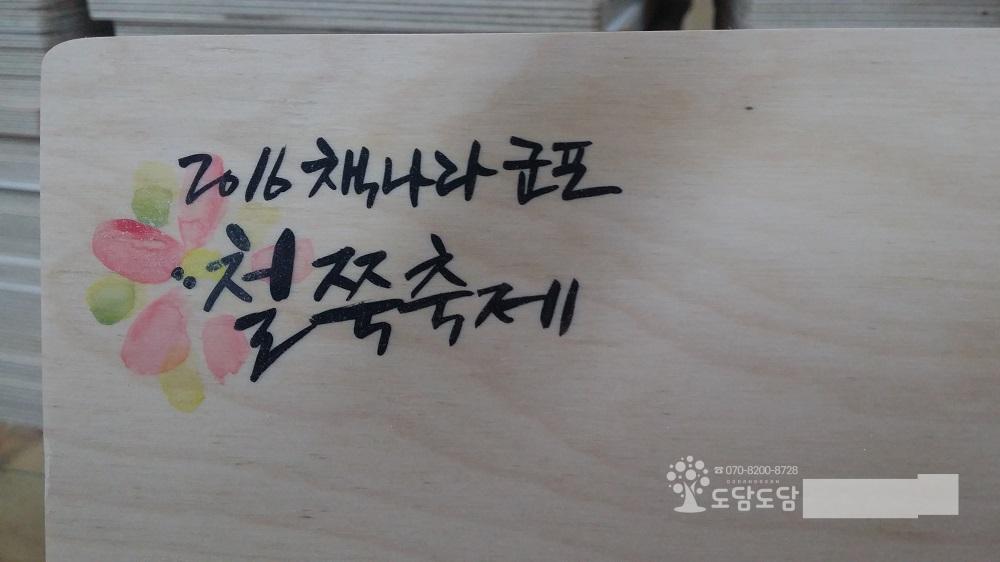 2016 책나라군포
철쭉축제
☎070-8200-8728
도담도담